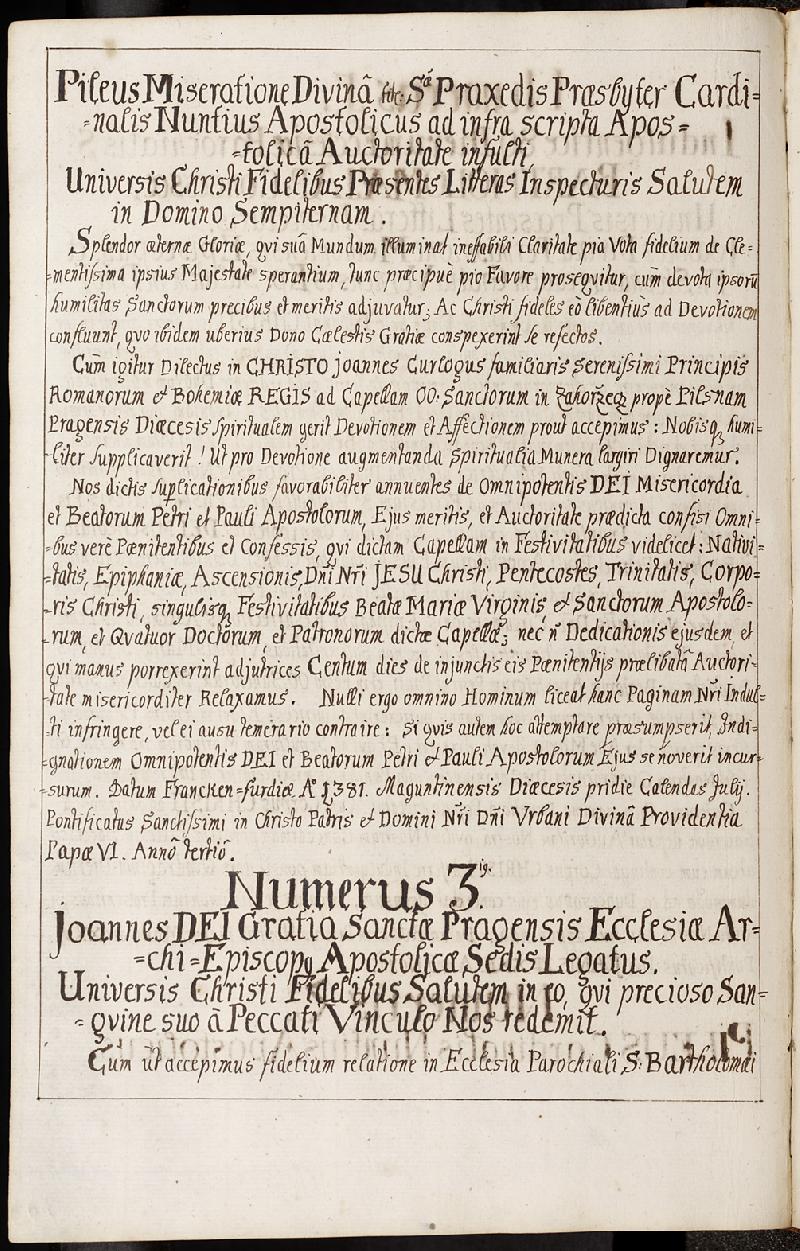 Pileus Miseratione Divinâ tit: Sᵃᵉ Praxedis Præsbyter Cardi=
=nalis Nuntius Apostolicus ad infra scripta Apos=
=tolicâ Auctoritate infulti,
Universis Christi Fidelibus Præsentes Litteras Inspecturis Salutem
in Domino Sempiternam.
Splendor æternæ Gloriæ, qvi suâ Mundum illuminat ineffabili Claritate pia Vota fidelium de Cle=
=mentissima ipsius Majestate sperantium, tunc præcipuè pio Favore proseqvitur, cum devota ipsorũ
humilitas Sanctorum precibus et meritis adjuvatur; Ac Christi fideles eò libentiùs ad Devotionem
confluunt, qvo ibidem uberius Dono Cœlestis Gratiæ conspexerint se refectos.
Cum igitur Dilectus in CHRISTO Joannes Curlogus familiaris Serenissimi Principis
Romanorum et Bohemiæ REGIS ad Capellam OO. Sanctorum in propè Pilsnam
Pragensis Diæcesis Spiritualem gerit Devotionem et Affectionem prout accepimus: Nobisq, humi=
=liter Supplicaverit! Ut pro Devotione augmentanda Spiritualia Munera largiri Dignaremur.
Nos dictis suplicationibus favorabiliter annuentes de Omnipotentis DEI Misericordia
et Beatorum Petri et Pauli Apostolorum, Ejus meritis, et Auctoritate prædicta confisi Omni=
=bus verè Pœnitentibus et Confessis, qvi dictam Capellam in Festivitatibus videlicet: Nativi=
=tatis, Epiphaniæ, Ascensionis Dñi Nr̃i JESU Christi, Pentecostes, Trinitatis, Corpo=
=ris Christi, singulisq, Festivitatibus Beatæ Mariæ Virginis, et Sanctorum Apostolo=
=rum, et Qvatuor Doctorum, et Patronorum dictæ Capellæ; nec ñ Dedicationis ejusdem, et
qvi manus porrexerint adjutrices Centum dies de injunctis eis Pœnitentijs prælibatâ Auctori=
=tate misericorditer Relaxamus. Nulli ergo omnino Hominum liceat hanc Paginam Nr̃i Indul=
=ti infringere, vel ei ausu temerario contraire: Si qvis autem hoc attemptare præsumpserit, Indi=
=gnationem Omnipotentis DEI et Beatorum Petri et Pauli Apostolorum Ejus se noverit incur=
=surum. Datum Francken=furdiæ Aº 1381. Maguntinensis Diæcesis pridie Calendas Julij.
Pontificatus Sanctissimi in Christo Patris et Domini Nr̃i Dñi Vrbani Divinâ Providentia
Papæ VI. Annô tertiô.
Numerus 3
Joannes DEI Gratia Sanctæ Pragensis Ecclesiæ Ar=
=chi=Episcopq Apostolicæ Sedis Legatus.
Universis Christi Fidelibus Salutem in eo, qvi precioso San=
=gvine suo â Peccati Vinculo Nos redemit.
Cum ut accepimus fidelium relatione in Ecclesia Parochiali S: Bartholomæi